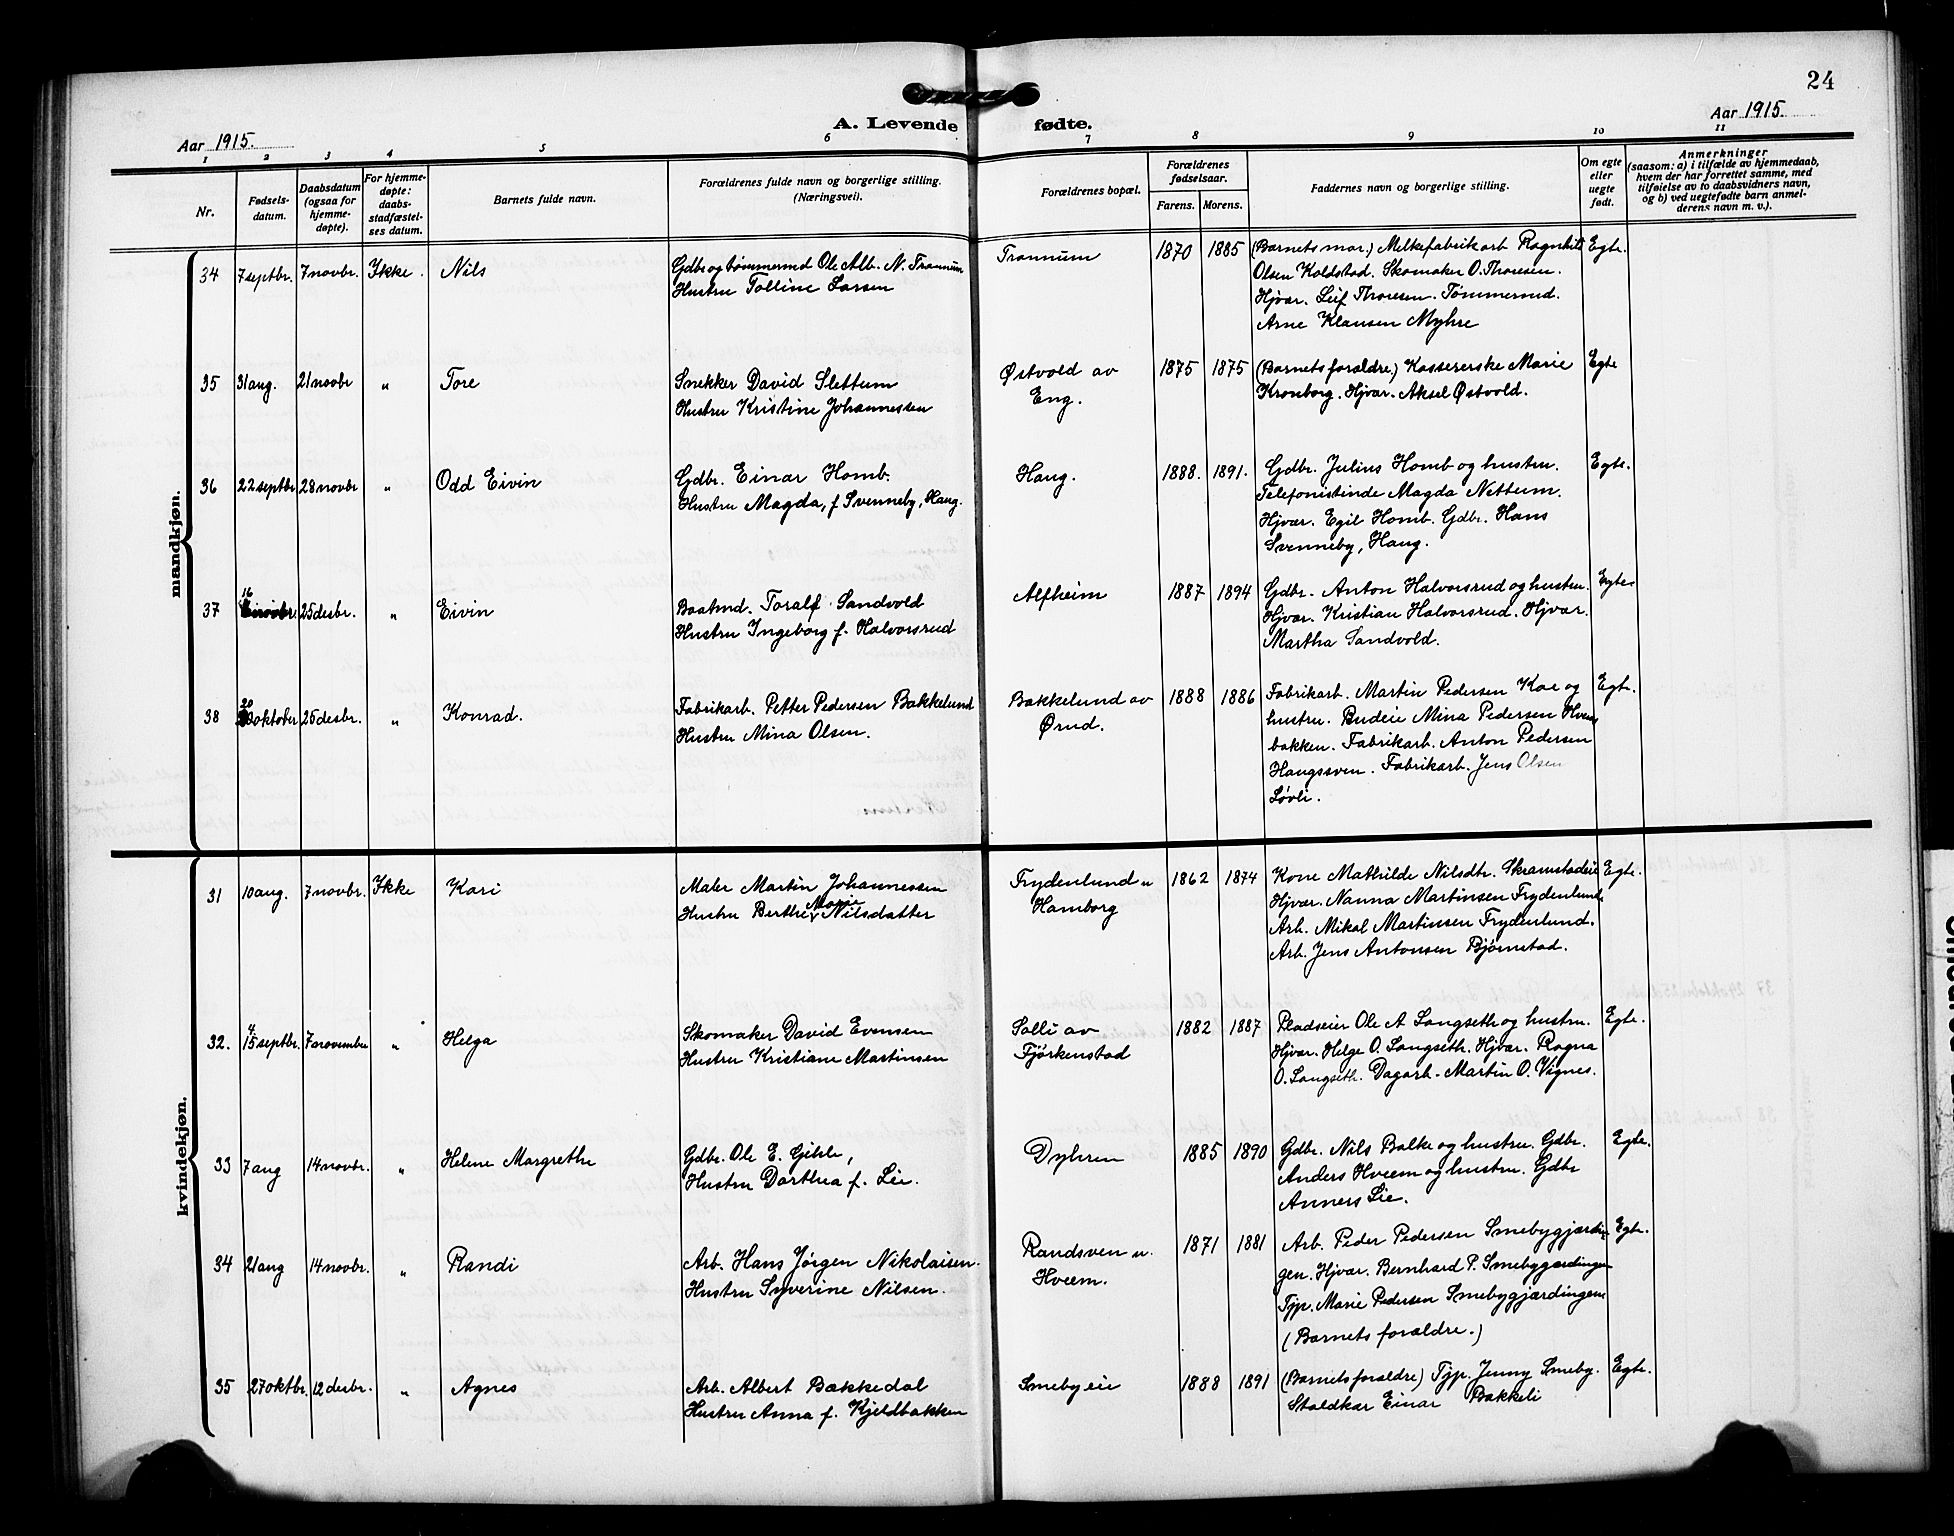 24
Aar 1915.
A. Levende fødte.
Aar 1915.
1 2 3 4 5 6 7 8 9 10 11
Nr.
Fødsels-
datum.
Daabsdatum
(ogsaa for
hjemme-
døpte).
For hjemme-
døpte:
daabs-
stadfæstel-
ses datum.
Barnets fulde navn.
Forældrenes fulde navn og borgerlige stilling.
(Næringsvei).
Forældrenes bopæl.
Forældrenes
fødselsaar.
Farens. Morens.
Faddernes navn og borgerlige stilling.
Om egte
eller
uegte
født.
Anmerkninger
(saasom: a) i tilfælde av hjemmedaab,
hvem der har forrettet samme, med
tilføielse av to daabsvidners navn,
og b) ved uegtefødte barn anmel-
derens navn m. v.).
mandkjøn.
34 7 septbr. 7 novbr. Ikke. Nils
Gdbr og tømmermd Ole Alb. N. Tranum
Hustru Tolline Larsen
Trannum
1870 1885
(Barnets mor.) Melkefabrikarb Ragnhild
Olsen Koldstad. Skomaker O. Thoresen.
Hjvær. Leif Thoresen. Tømmermd.
Arne Klausen Myhre
Egte.
35 31 aug. 21 novbr „ Tore
Snekker David Slettum
Hustru Kristine Johannessen
Østvold av
Eng.
1875 1875
(Barnets forældre.) Kassererske Marie
Kronborg. Hjvær. Aksel Østvold.
Egte
36 22 septbr 28 novbr „ Odd Eivin
Gdbr. Einar Homb.
Hustru Magda, f Svenneby, Haug.
Haug.
1888. 1891.
Gdbr. Julius Homb og hustru.
Telefonistinde Magda Nettum.
Hjvær. Egil Homb. Gdbr. Hans
Svenneby, Haug.
Egte.
37 16 25 desbr. „ Eivin
Baatmd. Toralf Sandvold
Hustru Ingeborg f. Halvorsrud
Alfheim
1887 1894
Gdbr. Anton Halvorsrud og hustru.
Hjvær. Kristian Halvorsrud. Hjvær.
Martha Sandvold.
Egte
38 20 oktober 25 desbr. „ Konrad.
Fabrikarb. Petter Pedersen Bakkelund
Hustru Mina Olsen.
Bakkelund av
Ørud.
1888 1886
Fabrikarb. Martin Pedersen Kar og
hustru. Budeie Mina Pedersen Hvem
bakken. Fabrikarb. Anton Pedersen
Haugssven. Fabrikarb. Jens Olsen
Løvli.
Egte.
kvindekjøn.
31 10 aug. 7 novbr. Ikke Kari
Maler Martin Johannessen
Hustru Berthe Marie Nilsdatter
Frydenlund u
Hamborg
1862 1874
Kone Mathilde Nilsdtr. Skramstadeie
Hjvær. Nanna Martinsen Frydenlund.
Arb. Mikal Martinsen Frydenlund.
Arb. Jens Antonsen Bjørnstad.
Egte.
32. 4 septbr. 7 november „ Helga
Skomaker David Evensen
Hustru Kristiane Martinsen
Solli av
Fjørkenstad
1882 1887
Pladseier Ole A Langseth og hustru.
Hjvær. Helge O. Langseth. Hjvær. Ragna
O. Langseth. Dagarb. Martin O. Vignes.
Egte.
33 7 aug 14 novbr. „ Helene Margrethe
Gdbr. Ole E. Gihle,
Hustru Dorthea f. Lie.
Dyhren
1885 1890
Gdbr. Nils Balke og hustru. Gdbr.
Anders Hveem og hustru. Gdbr
Anners Lie.
Egte.
34 21 aug 14 novbr. „ Randi
Arb. Hans Jørgen Nikolaisen.
Hustru Syverine Nilsen.
Randsven u.
Hveem.
1871 1881
Arb. Peder Pedersen Smebygjærdin
gen. Hjvær. Bernhard P. Smebygærdingen
Tjp. Marie Pedersen Smebygjærdingen
(Barnets forældre.)
Egte.
35 27 oktbr. 12 desbr. „ Agnes
Arb. Albert Bækkedal
Hustru Anna f. Kjeldbakken
Smebyeie
1888 1891
(Barnets forældre) Tjp. Jenny Smeby.
Staldkar Einar Bakkeli
Egte.